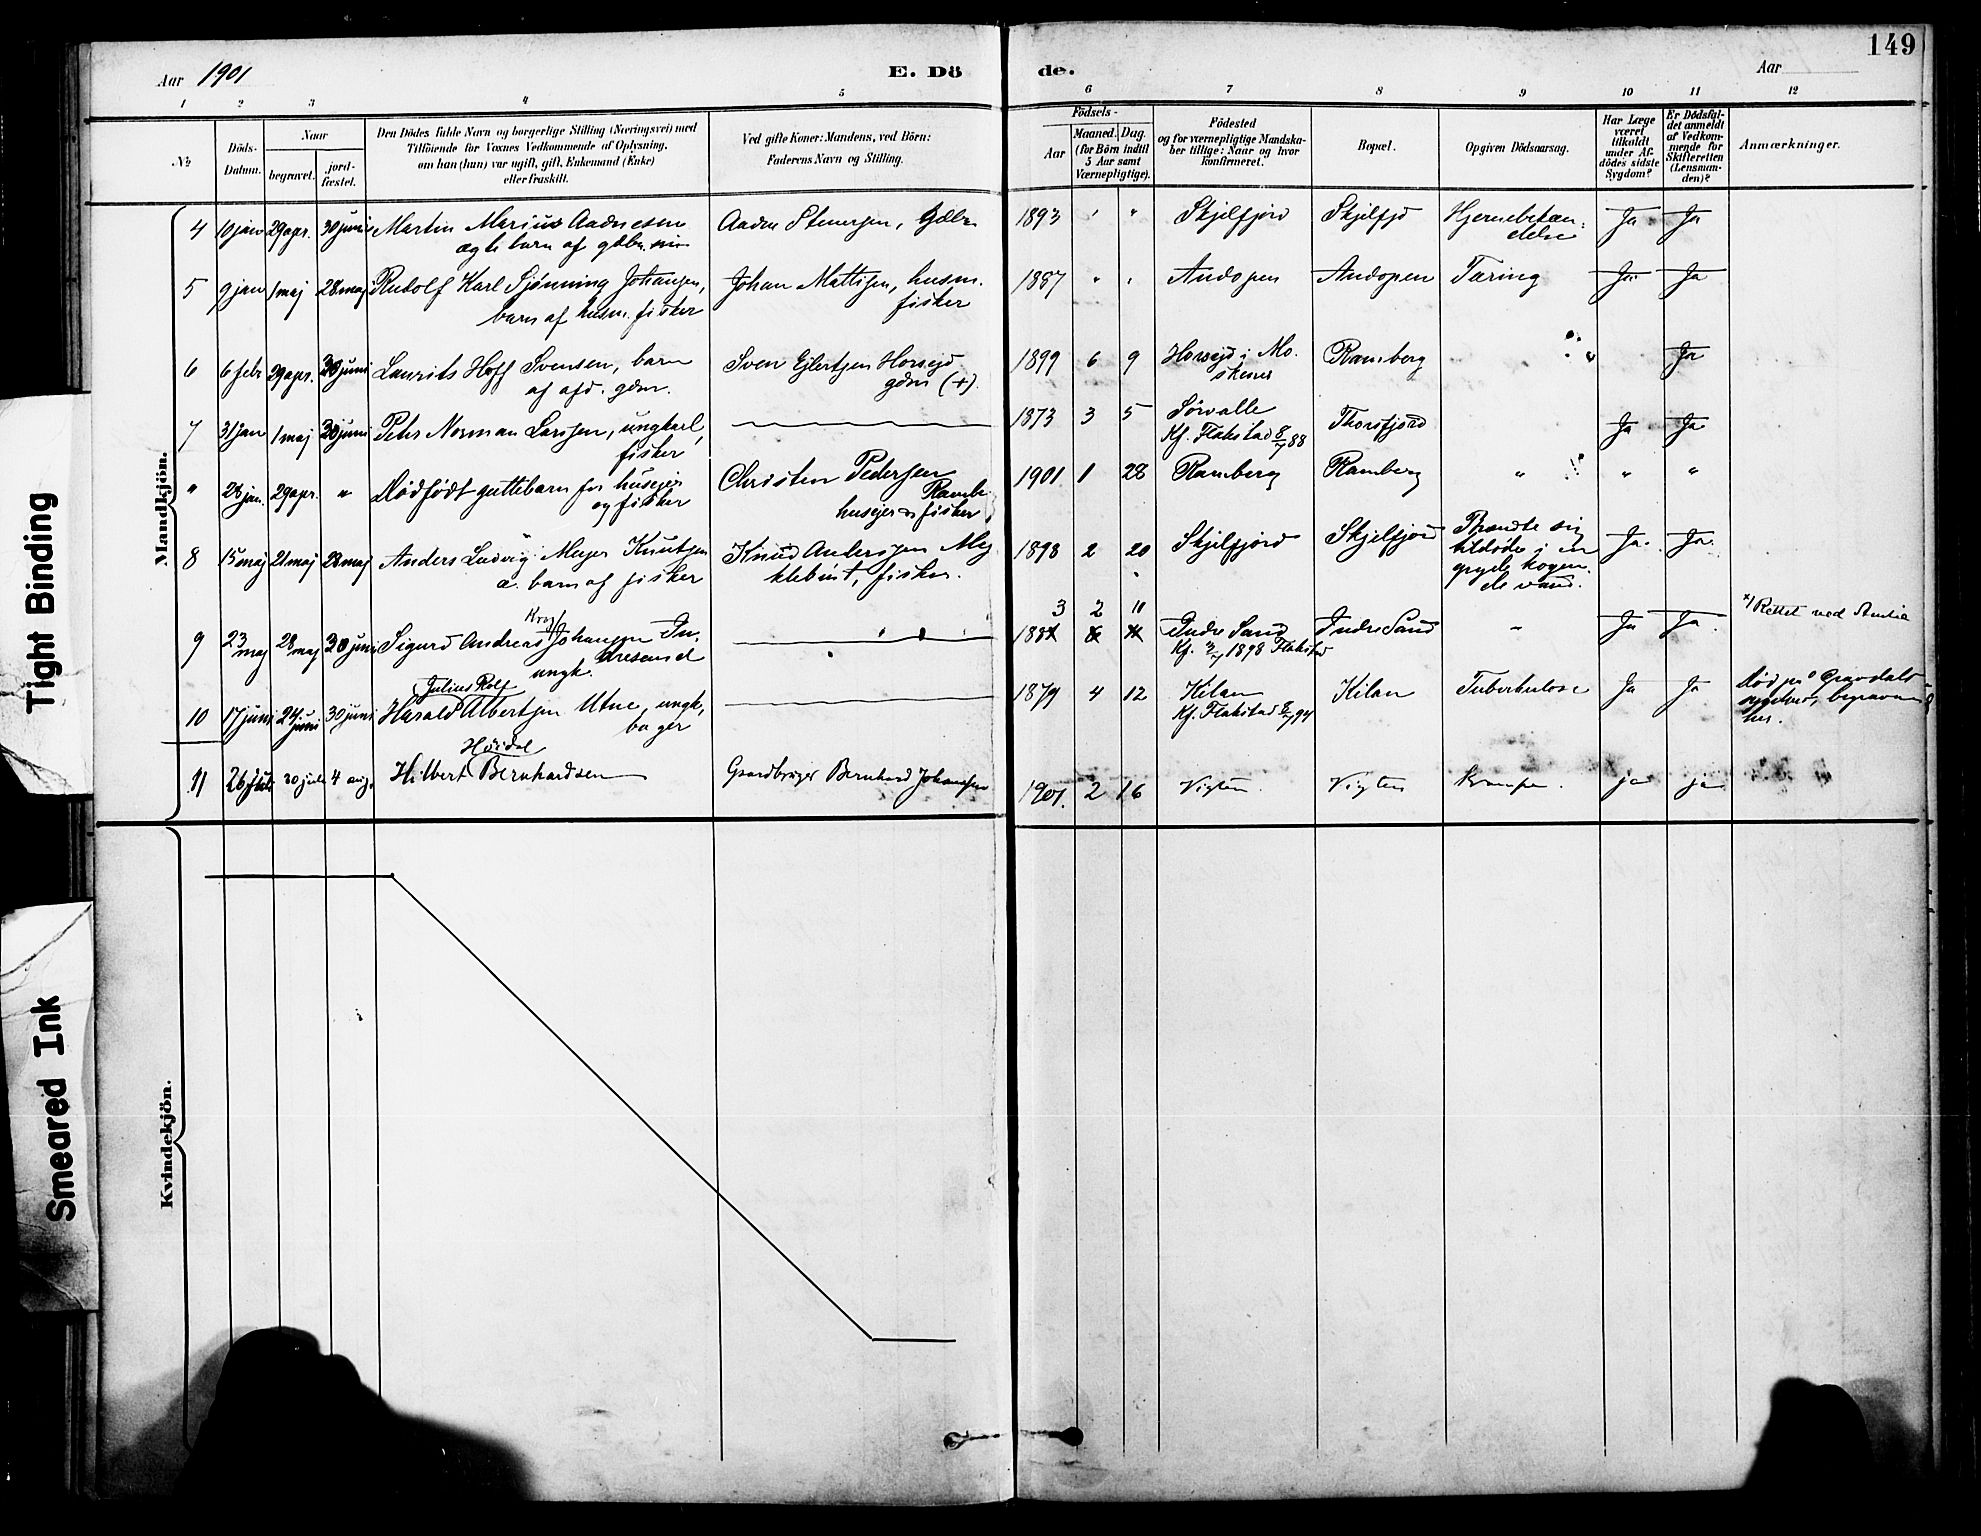 149
Aar 1901
E. Dö
de.
Aar
1 2 3 4 5 6 7 8 9 10 11 12
No
Döds-
Datum.
Naar
begravet.
jord-
fæstet.
Den Dödes fulde Navn og borgerlige Stilling (Næringsvei) med
Tilföiende for Voxnes Vedkommende af Oplysning,
om han (hun) var ugift, gift, Enkemand (Enke)
eller fraskilt.
Ved gifte Koner: Mandens, ved Börn:
Faderens Navn og Stilling.
Födsels-
Aar
Maaned.
Dag.
(for Börn indtil
5 Aar samt
Værnepligtige).
Födested
og for værnepligtige Mandska-
ber tillige: Naar og hvor
konfirmeret.
Bopæl.
Opgiven Dödsaarsag.
Har Læge
været
tilkaldt
under Af-
dödes sidste
Sygdom?
Er Dödsfal-
det anmeldt
af Vedkom-
mende for
Skifteretten
(Lensman-
den)?
Anmærkninger.
Mandkjön.
4 10 jan 29 apr. 30 juni Martin Marius Aadnesen
ægte barn af
1893 Skjelfjord Skjelfjd Hjernebetæn-
delse Ja Ja
5 9 jan 1 maj 28 maj Rudolf Karl Sjønning Johansen,
barn af husm. fisker
Johan Mattisen, husm.
fisker
1887 Andopen Andopen Tæring Ja Ja
6 6 febr 29 apr. 30 juni Laurits Hoff Svensen, barn
af afd. gdm.
Sven Ejlertsen Horsejd
gdm (+).
1899 6 9 Horsejd i Mo-
skenes Ramberg " Ja
7 31 jan 1 maj 30 juni Peter Norman Larsen, ungkarl,
fisker
1873 3 5 Sørvalle
Kf. Flakstad 8/7 88 Thorsfjord Ja Ja
" 28 jan. 29 apr. " Dødfødt guttebarn for husejer
og fisker
Christen Pedersen
Ramb
husejer & fisker
1901 1 28 Ramberg Ramberg " " "
8 15 maj 21 maj 28 maj Anders Ludvig Mejer Knutsen
æ. barn af fisker
Knud Andersen My
klebust, fisker.
1898 2 20 Skjelfjord Skjelfjord Brændte sig
tildøde i en
gryde kogen-
de vand. Ja. Ja.
9 23 maj 28 maj 30 juni Sigurd Andreas Johansen In-
dresand
ungk.
3 2 11
188 Indre Sand
Kf. 1898 Flakstad Indre Sand " Ja Ja
x) Rettet ved
10 17 juni 24 juni 30 juni Julius Rolf
Harald Albertsen Utne, ungk,
bager
1879 4 12 Kilan
Kf. Flakstad 8/7 94 Kilan Tuberkulose Ja Ja
Død på Gravdals
sygehus, begraven
her.
11 26 juli 30 juli 4 aug. Høidal
Hilbert Bernhardsen
Gaardbruger Bernhard Johansen
1901. 2 16 Vigten. Vigten Krampe. ja ja
Kvindekjön.
Tight Binding
Smeared Ink